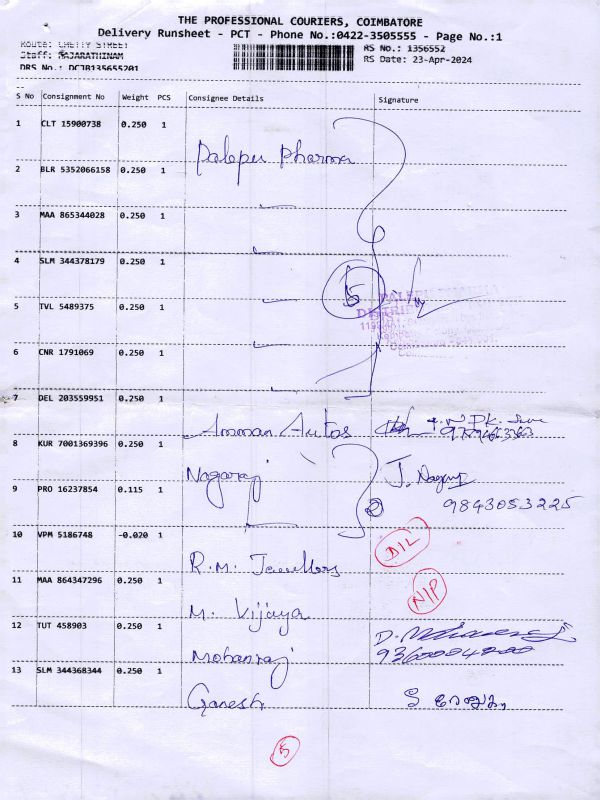 THE PROFESSIONAL COURIERS, COIMBATORE
Delivery Runsheet - PCT - Phone No.:0422-3505555 - Page No.:1
Route: CHETTY STREET
Staff: RAJARATHINAM
DRS No.: DCJB135655201
RS No.: 1356552
RS Date: 23-Apr-2024
S No Consignment No Weight PCS Consignee Details Signature
1 CLT 15900738 0.250 1
Palepu Pharma
2 BLR 5352066158 0.250 1
3 MAA 865344028 0.250 1
4 SLM 344378179 0.250 1
5
PALEPU PHARMA
5 TVL 5489375 0.250 1
6 CNR 1791069 0.250 1
7 DEL 203559951 0.250 1
Amman Autos
8 KUR 7001369396 0.250 1
Nagaraj J. Nagaraj
9 PRO 16237854 0.115 1
2 9843053225
10 VPM 5186748 -0.020 1
R.M. Jewellers DIL
11 MAA 864347296 0.250 1
M. Vijaya N/P
12 TUT 458903 0.250 1
Mohanraj
13 SLM 344368344 0.250 1
Ganesh
5